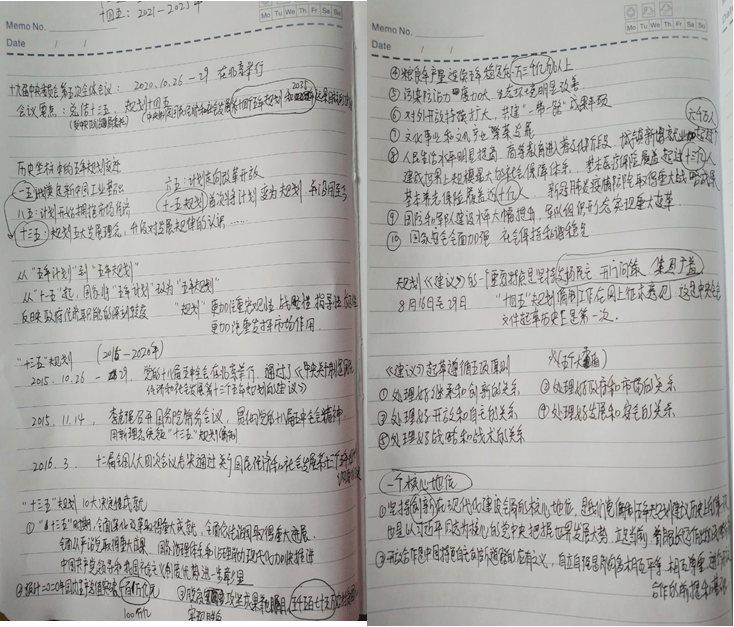 十四五：2021-2025年
Memo No.
Mo Tu We Th Fr Sa Su
Date / /
十九届中央委员会第五次全体会议： 2020.10.26-29 在北京举行
会议要点：总结十三五，规划十四五
2035
历史坐标中的五年规划变迁
六五：计划走向改革开放
八五：计划开始拥抱市场经济
十一五 首次将计划变为规划
十三五：规划五大发展理念，开启对发展规律的认识……
从“五年计划”到“五年规划”
从“十一五”起，国家将“五年计划”改为“五年规划”
反映政府 职能的深刻转变 “规划”更加注重宏观性、战略性、指导性
更加注重发挥市场作用
“十三五”规划 （2016-2020年）
2015.10.26 - 29， 党的十八届五中全会在北京召开，通过了《中共关于制定国民
经济和社会发展第十三个五年规划的建议》
2015.11.14， 李克强召开国务院常务会议，贯彻党的十八届五中全会精神
用新理念统领“十三五”规划编制
2016.3. 十二届全国人大四次会议表决通过关于国民经济和社会发展第十三个五年
“十三五”规划 10大决定性成就
① “十三五”时期，全面深化改革取得重大成就，全面依法治国取得重大进展，
全面从严治党取得重大成果，国家治理体系和治理能力现代化加快推进
中国共产党领导和我国社会主义制度优势进一步彰显
② 预计二〇二〇年国内生产总值突破一百万亿元
100万亿
③ 脱贫攻坚成果 五千五百七十五万
实现脱贫
Memo No.
Mo Tu We Th Fr Sa Su
Date / /
④ 粮食年产量连续五年稳定在一万三千亿斤以上
⑤ 污染防治力度加大，生态环境明显改善
⑥ 对外开放持续扩大，共建“一带一路”成果丰硕
⑦ 文化事业和文化产业繁荣发展
六千万人
⑧ 人民生活水平明显提高，高等教育进入普及化阶段，城镇新增就业超过
建成世界上规模最大的社会保障体系，基本医疗保险覆盖超过十三亿人
基本养老保险覆盖近十亿人，新冠肺炎疫情防控取得重大战略成果
⑨ 国防和军队建设水平大幅提升，军队组织形态实现重大变革
⑩ 国家安全全面加强，社会保持和谐稳定
规划《建议》的一个重要特点是坚持发扬民主、开门问策、集思广益
8月16日至29日 “十四五”规划编制工作在网上征求意见，这是中央全会
文件起草历史上是第一次.
《建议》起草遵循五项原则
① 处理好继承和创新的关系 ② 处理好政府和市场的关系
③ 处理好开放和自主的关系 ④ 处理好发展和安全的关系
⑤ 处理好战略和战术的关系
一个核心地位
① 坚持创新在现代化建设全局的核心地位，
也是以习近平同志为核心的党中央把握世界发展大势、立足当前、着眼长远作出的战略
② 开放合作是中国 自立自强是 相互
合作的前提和基础